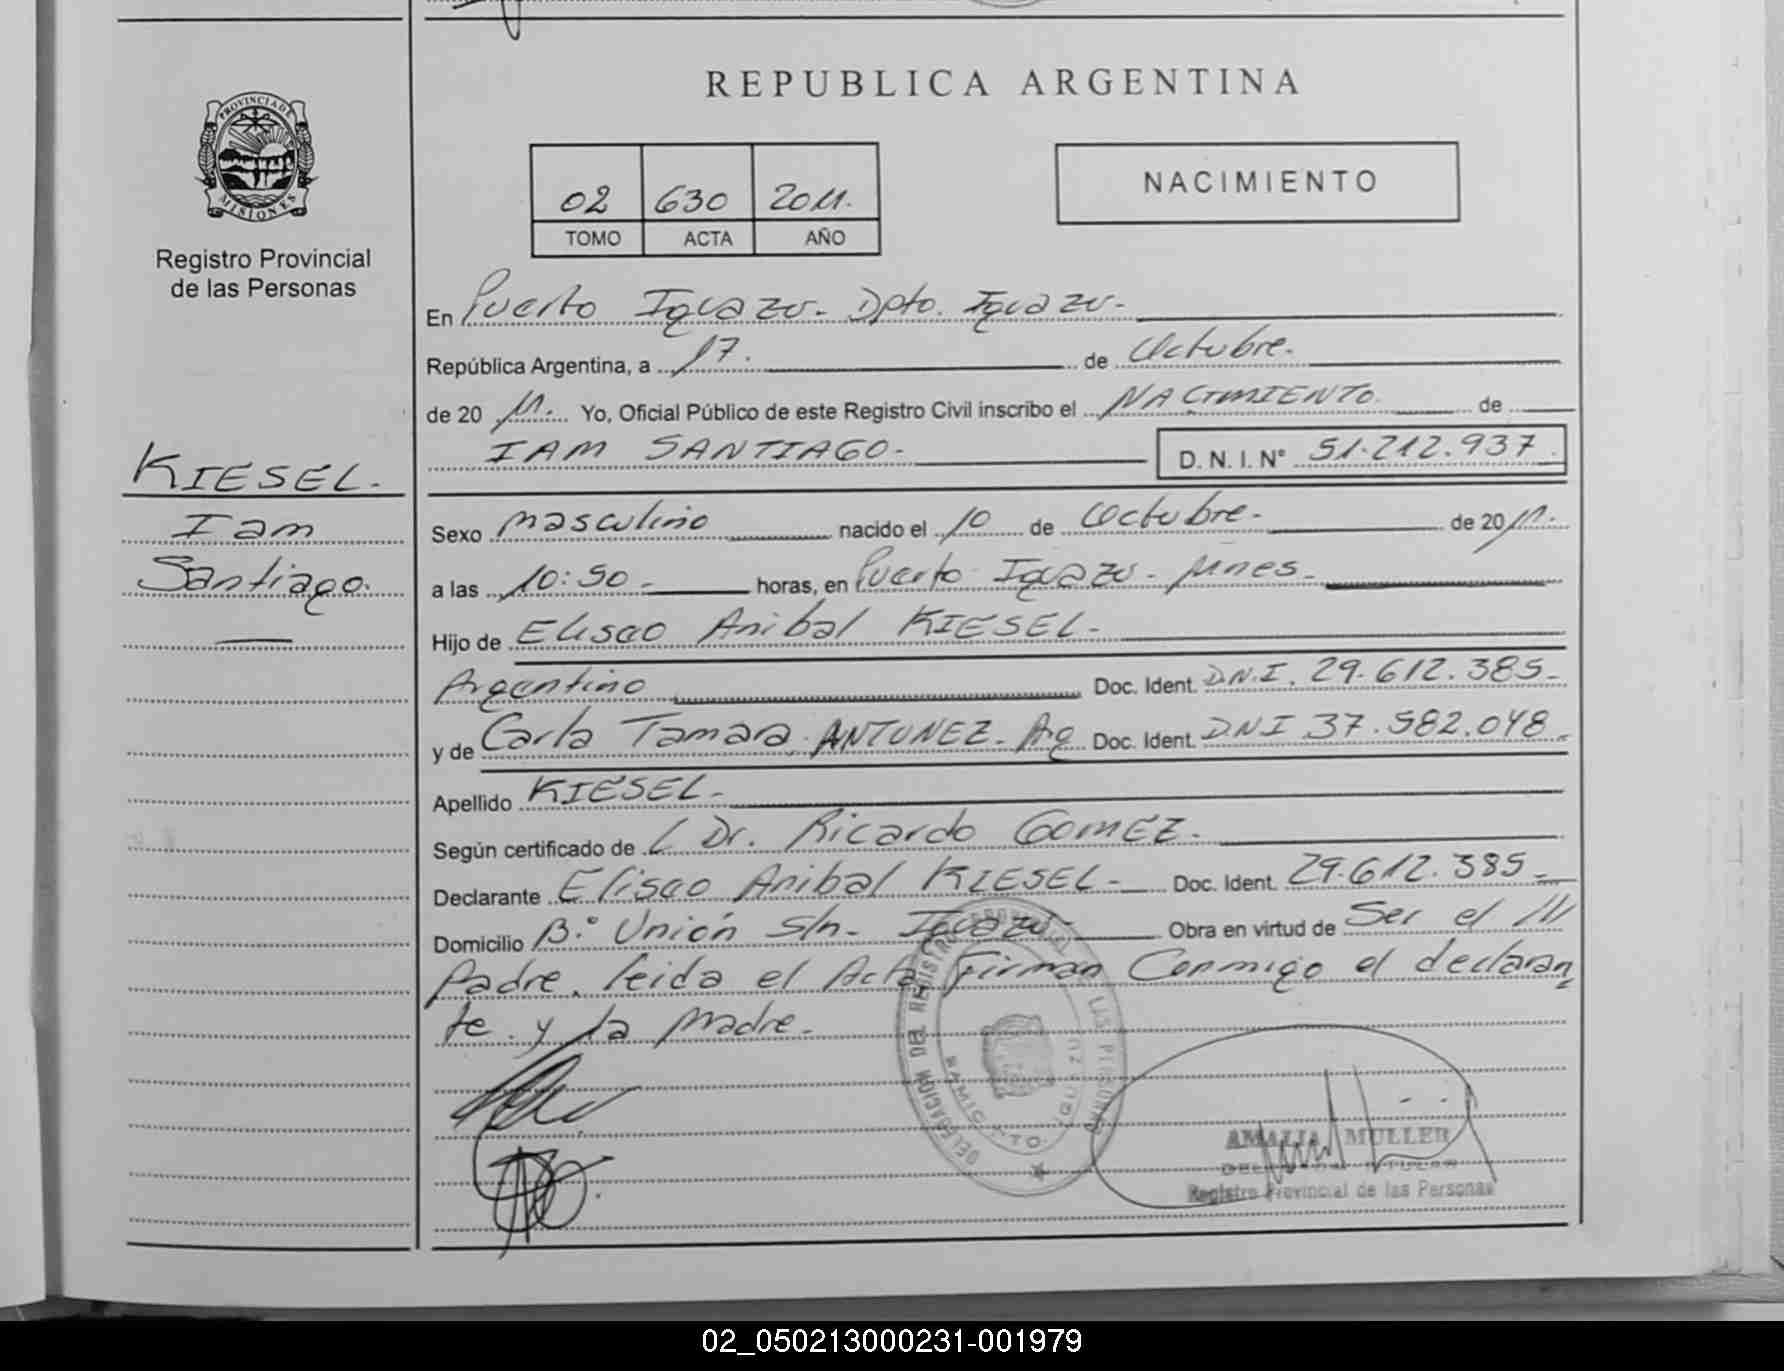 REPUBLICA ARGENTINA
PROVINCIA DE
MISIONES
Registro Provincial
de las Personas
02 630 2011.
TOMO ACTA AÑO
NACIMIENTO
KIESEL.
Iam
Santiago.
En Puerto Iguazu. Dpto. Iguazu-
República Argentina, a 17. de Octubre.
de 20 11. Yo, Oficial Público de este Registro Civil inscribo el NACIMIENTO de
IAM SANTIAGO- D. N. I. N° 51.212.937.
Sexo masculino nacido el 10 de Octubre. de 20 11.
a las 10:50 horas, en Puerto Iguazu- Mnes-
Hijo de Eliseo Anibal KIESEL-
Argentino Doc. Ident. D.N.I. 29.612.385-
y de Carla Tamara ANTUNEZ- Arg Doc. Ident. DNI 37.582.048-
Apellido KIESEL-
Según certificado de Dr. Ricardo GOMEZ.
Declarante Eliseo Anibal KIESEL- Doc. Ident. 29.612.385-
Domicilio B.° Unión S/n- Iguazu- Obra en virtud de Ser el
Padre. leida el Acta Firman Conmigo el declaran
te. y la Madre.
DELEGACION DEL REGISTRO PROVINCIAL DE LAS PERSONAS
DPTO. IGUAZU
AMALIA MULLER
Registro Provincial de las Personas
02_050213000231-001979